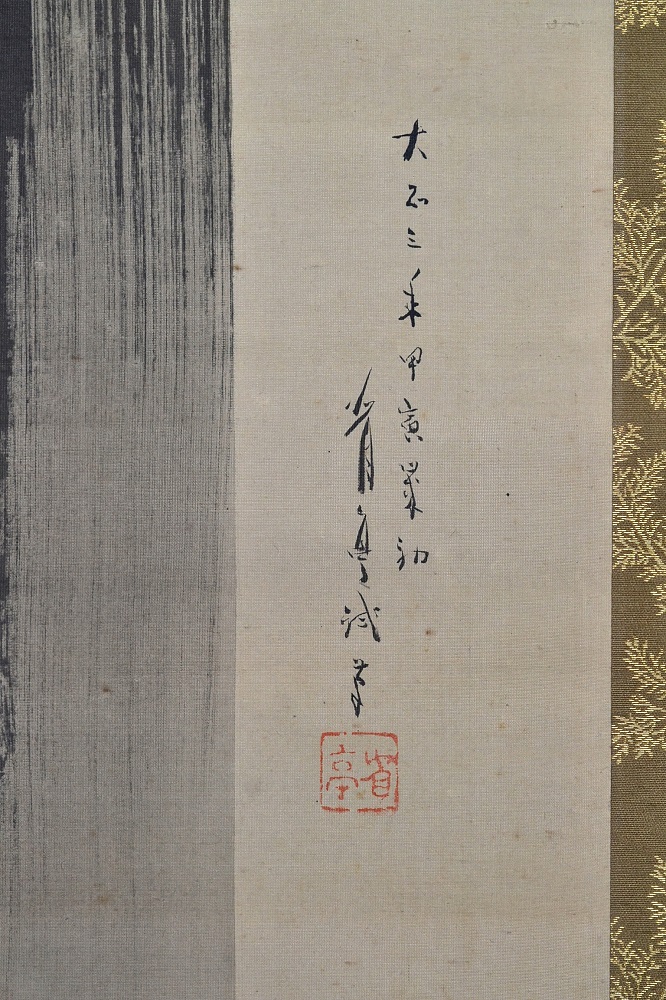 大正三年甲寅初
省亭試筆
省亭